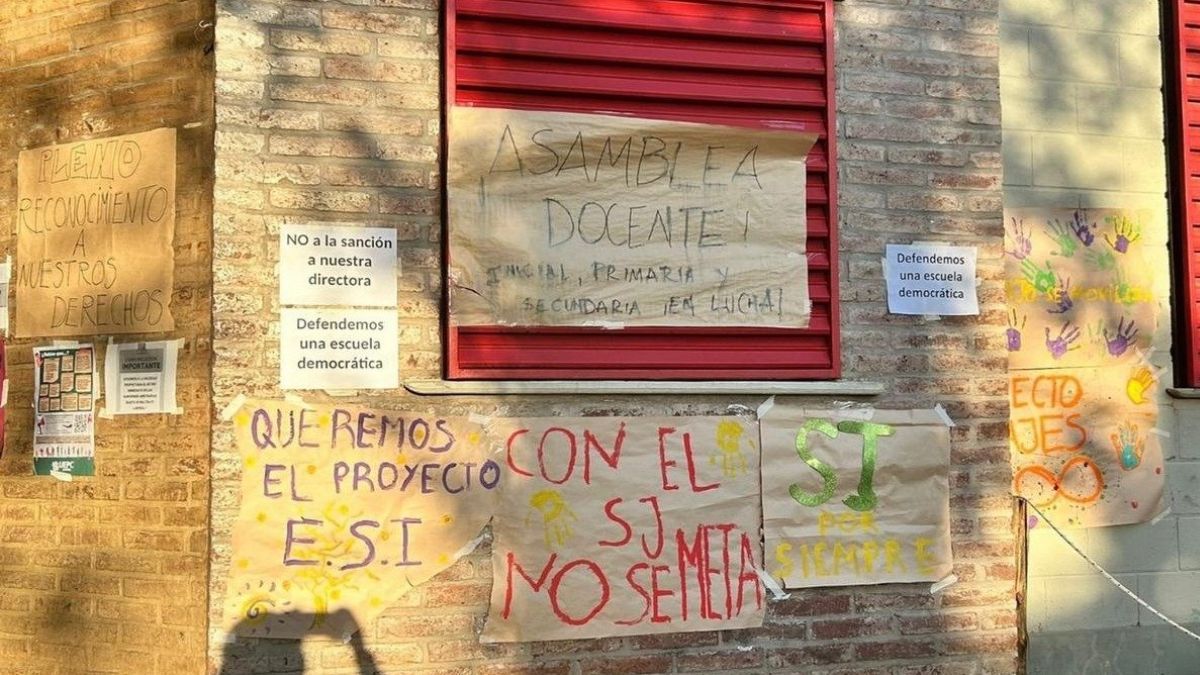 PLENO
RECONOCIMIENTO
A
NUESTROS
DERECHOS
IMPORTANTE
UEPC
NO a la sanción
a nuestra
directora
Defendemos
una escuela
democrática
¡ASAMBLEA
DOCENTE!
INICIAL, PRIMARIA Y
SECUNDARIA ¡EN LUCHA!
Defendemos
una escuela
democrática
QUEREMOS
EL PROYECTO
E.S.I
CON EL
SJ
NO SE META
SI
POR
SIEMPRE
ECTO
JES